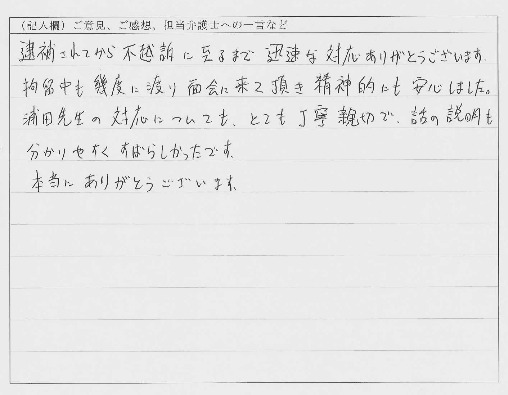 (記入欄)ご意見、ご感想、担当弁護士への一言など
逮捕されてから不越訴に至るまで 迅速な対応ありがとうございます。
拘留中も幾度に渡り面会に来て頂き精神的にも安心しました。
浦田先生の対応についても、とても丁寧親切で、話の説明も
分かりやすくすばらしかったです。
本当にありがとうございます。